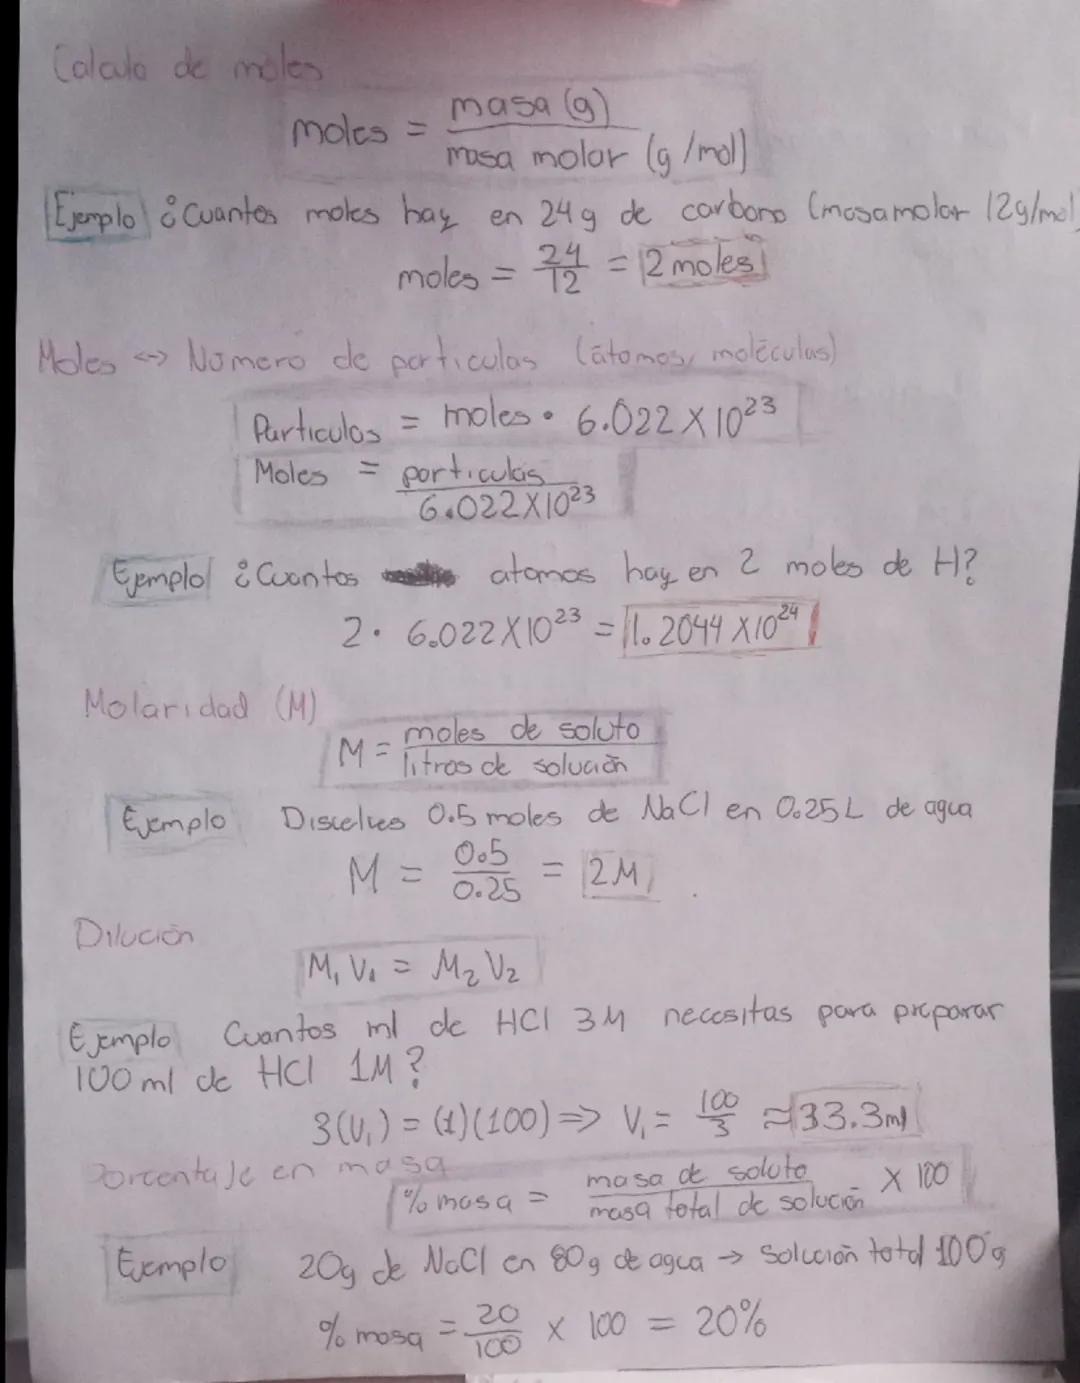 Calculo de moles
moles = masa (g) / masa molar (g/mol)
Ejemplo ¿Cuantos moles hay en 24g de carbono (masa molar 12g/mol)
moles = 24/12 = 2 moles
Moles <-> Número de particulas (átomos, moléculas)
Particulas = moles · 6.022 X 10²³
Moles = particulas / 6.022X10²³
Ejemplo ¿Cuantos atomos hay en 2 moles de H?
2 · 6.022X10²³ = 1.2044 X10²⁴
Molaridad (M)
M = moles de soluto / litros de solución
Ejemplo Discelves 0.5 moles de NaCl en 0.25L de agua
M = 0.5/0.25 = 2M
Dilución
M₁ V₁ = M₂ V₂
Ejemplo Cuantos ml de HCl 3M necesitas para preparar
100 ml de HCl 1M?
3(V₁) = (1)(100) => V₁ = 100/3 ≈ 33.3ml
Porcentaje en masa
% masa = masa de soluto / masa total de solución X 100
Ejemplo 20g de NaCl en 80g de agua → Solución total 100g
% masa = 20/100 x 100 = 20%